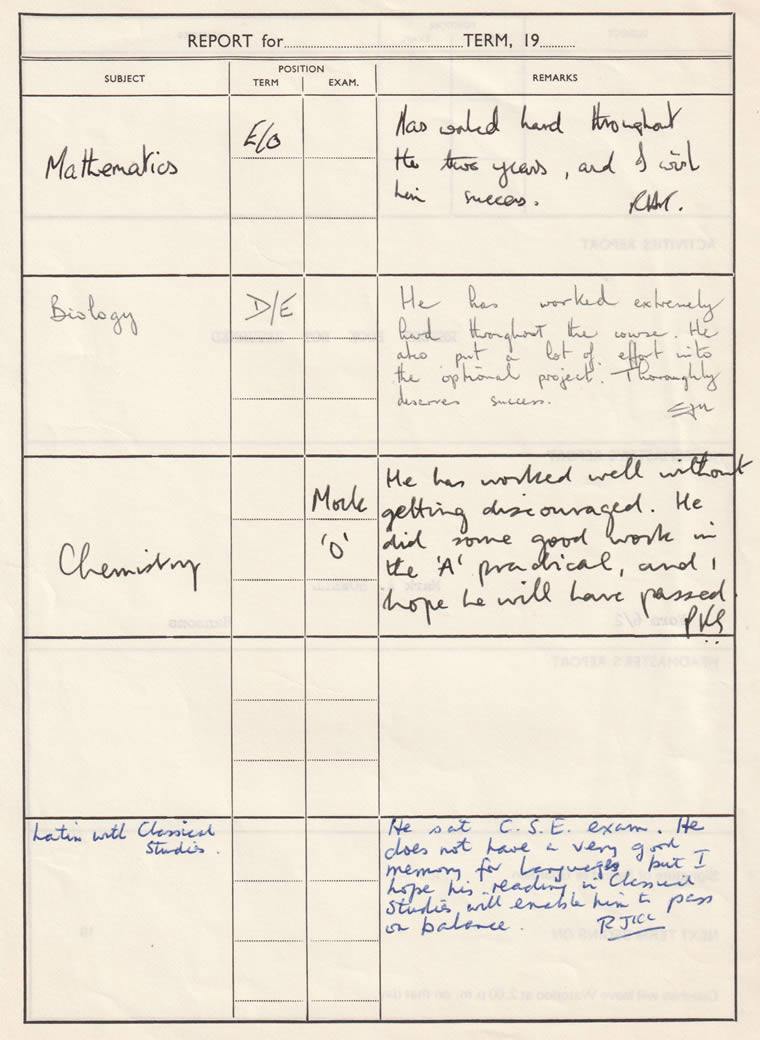 REPORT for........................TERM, 19......
SUBJECT
POSITION
TERM EXAM.
REMARKS
Mathematics
E/O
Has worked hard throughout
the two years, and I wish
him success.
Biology
D/E
He has worked extremely
hard throughout the course. He
also put a lot of effort into
the optional project. Thoroughly
deserves success.
Chemistry
Mock
'O'
He has worked well without
getting discouraged. He
did some good work in
the 'A' practical, and I
hope he will have passed.
PKS
Latin with Classical
Studies.
He sat C.S.E. exam. He
does not have a very good
memory for languages, but I
hope his reading in Classical
Studies will enable him to pass
on balance.
ACTIVITIES REPORT
HEADMASTER'S REPORT
NEXT TERM
19